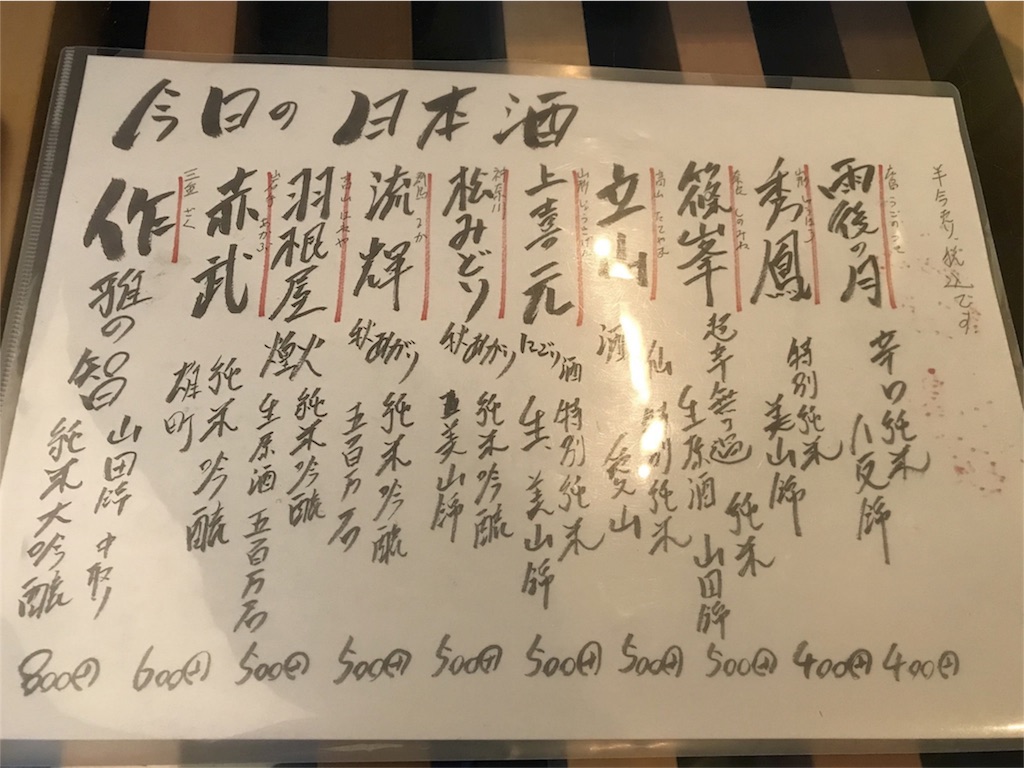 今日の日本酒
半合売り税込です
広島 うごのつき
雨後の月 辛口純米
八反錦
400円
山形 しゅうほう
秀鳳 特別純米
美山錦
400円
奈良 しのみね
篠峯 超辛無ろ過 純米
生原酒 山田錦
500円
たてやま
立山 仙 特別純米
酒 愛山
500円
山形 じょうきげん
上喜元 にごり酒 特別純米
生 美山錦
500円
神奈川
松みどり 秋あがり 純米吟醸
美山錦
500円
群馬 るか
流輝 秋あがり 純米吟醸
五百万石
500円
羽根屋 煌火 純米吟醸
生原酒 五百万石
500円
赤武 純米吟醸
雄町
600円
三重 ざく
作 雅の智 山田錦 中取り
純米大吟醸
800円